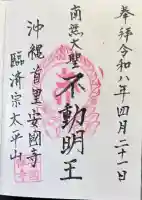 奉拝令和八年四月二十一日
南無大聖
不動明王
沖縄首里安國寺
臨済宗太平山